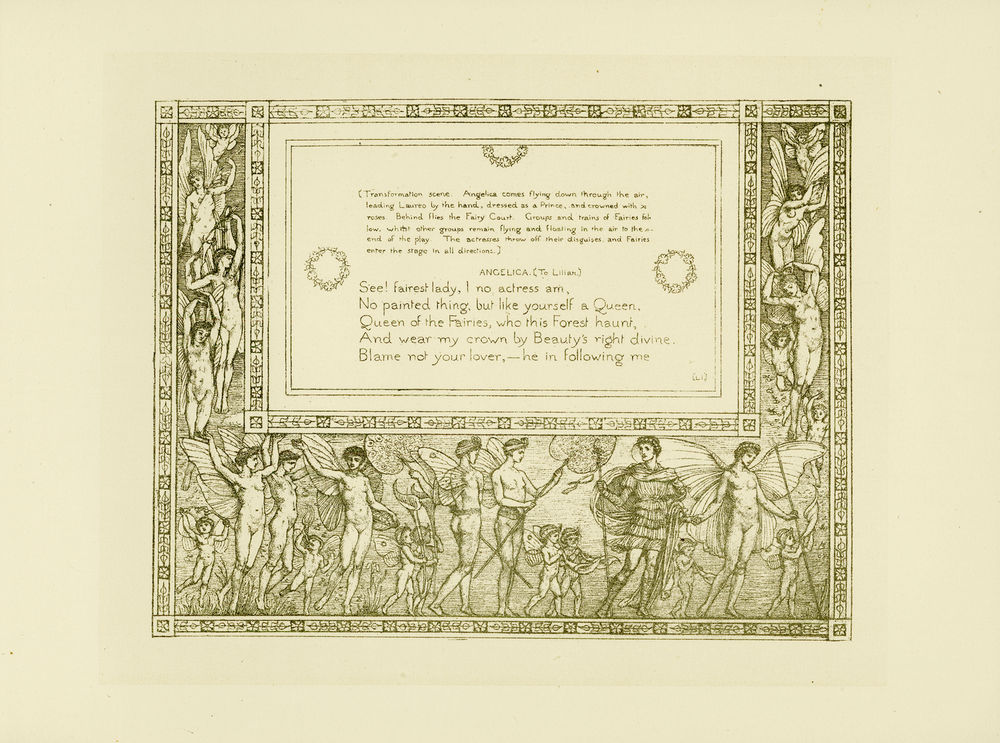 (Transformation scene. Angelica comes flying down through the air,
leading Laureo by the hand, dressed as a Prince, and crowned with
roses. Behind flies the Fairy Court. Groups and trains of Fairies fol-
low, whilst other groups remain flying and floating in the air to the
end of the play. The actresses throw off their disguises, and Fairies
enter the stage in all directions.)
ANGELICA. (To Lilian.)
See! fairest lady, I no actress am,
No painted thing, but like yourself a Queen,
Queen of the Fairies, who this Forest haunt,
And wear my crown by Beauty's right divine.
Blame not your lover,—he in following me
[LI]